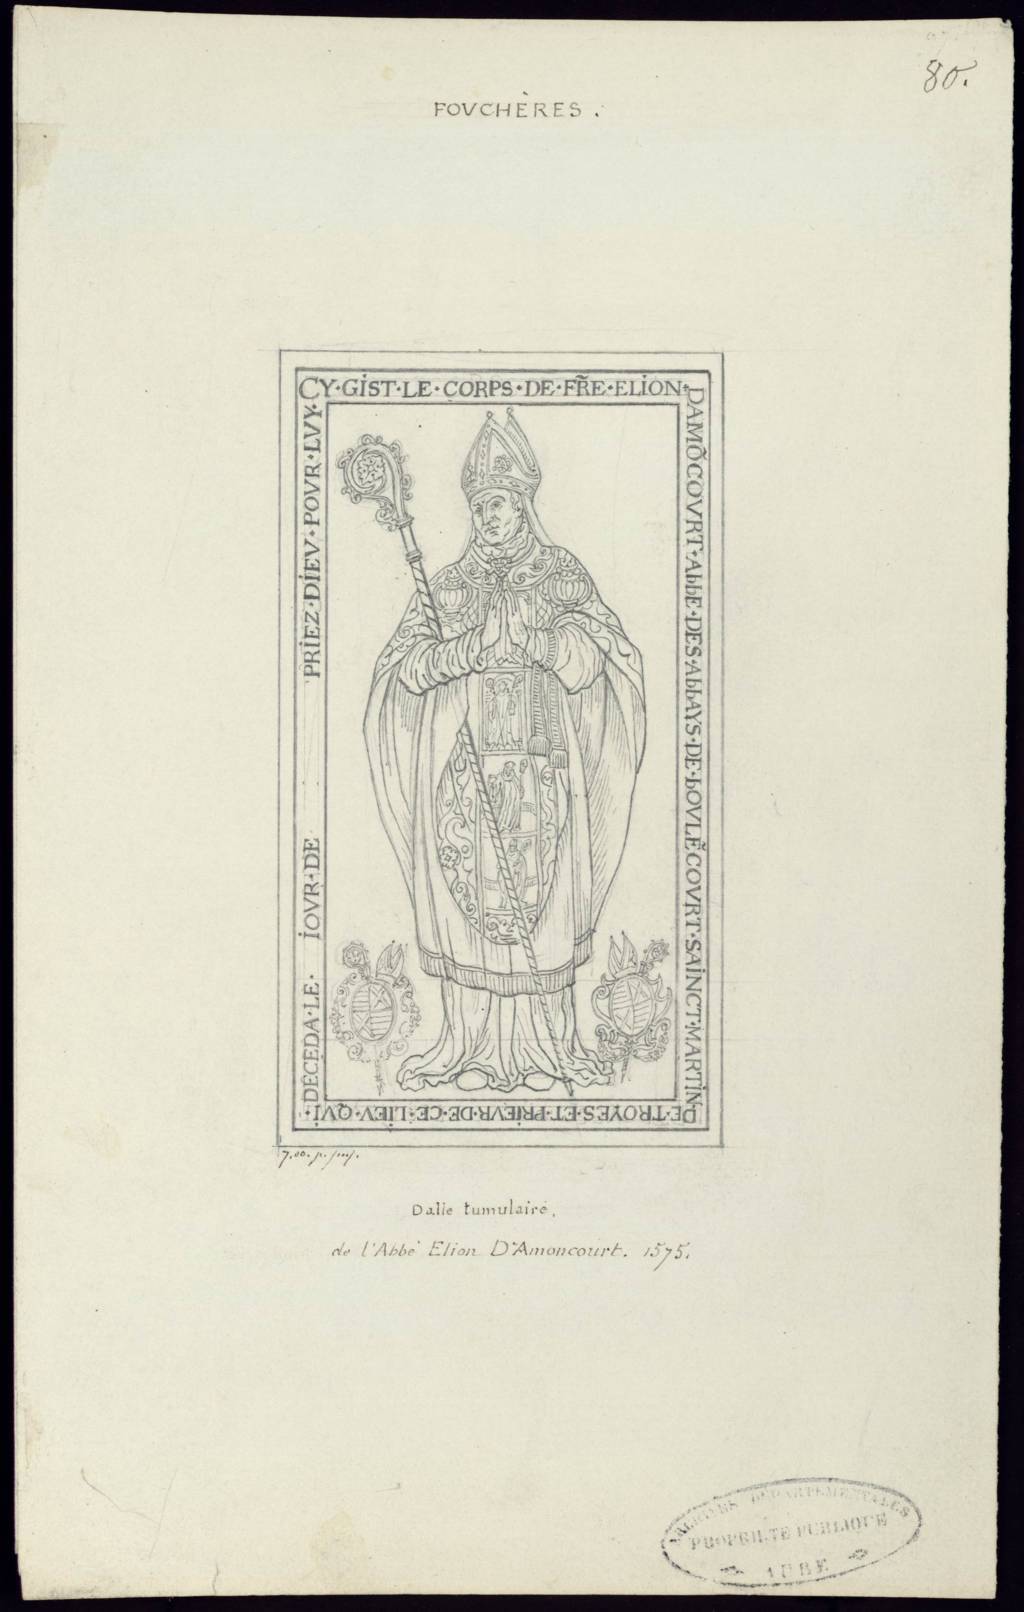 80.
FOVCHÈRES.
CY·GIST·LE·CORPS·DE·FR̃E·ELION·
DAMÕCOVRT·ABBE·DES·ABBAYS·DE·BOVLẼCOVRT·SAINCT·MARTIN
DE·TROYES·ET·PRIEVR·DE·CE·LIEV·QVI·
DECEDA·LE· IOVR·DE
PRIEZ·DIEV·POVR·LVY·
Dalle tumulaire,
de l'Abbé Elion D'Amoncourt. 1575.
ARCHIVES DÉPARTEMENTALES
PROPRIÉTÉ PUBLIQUE
AUBE